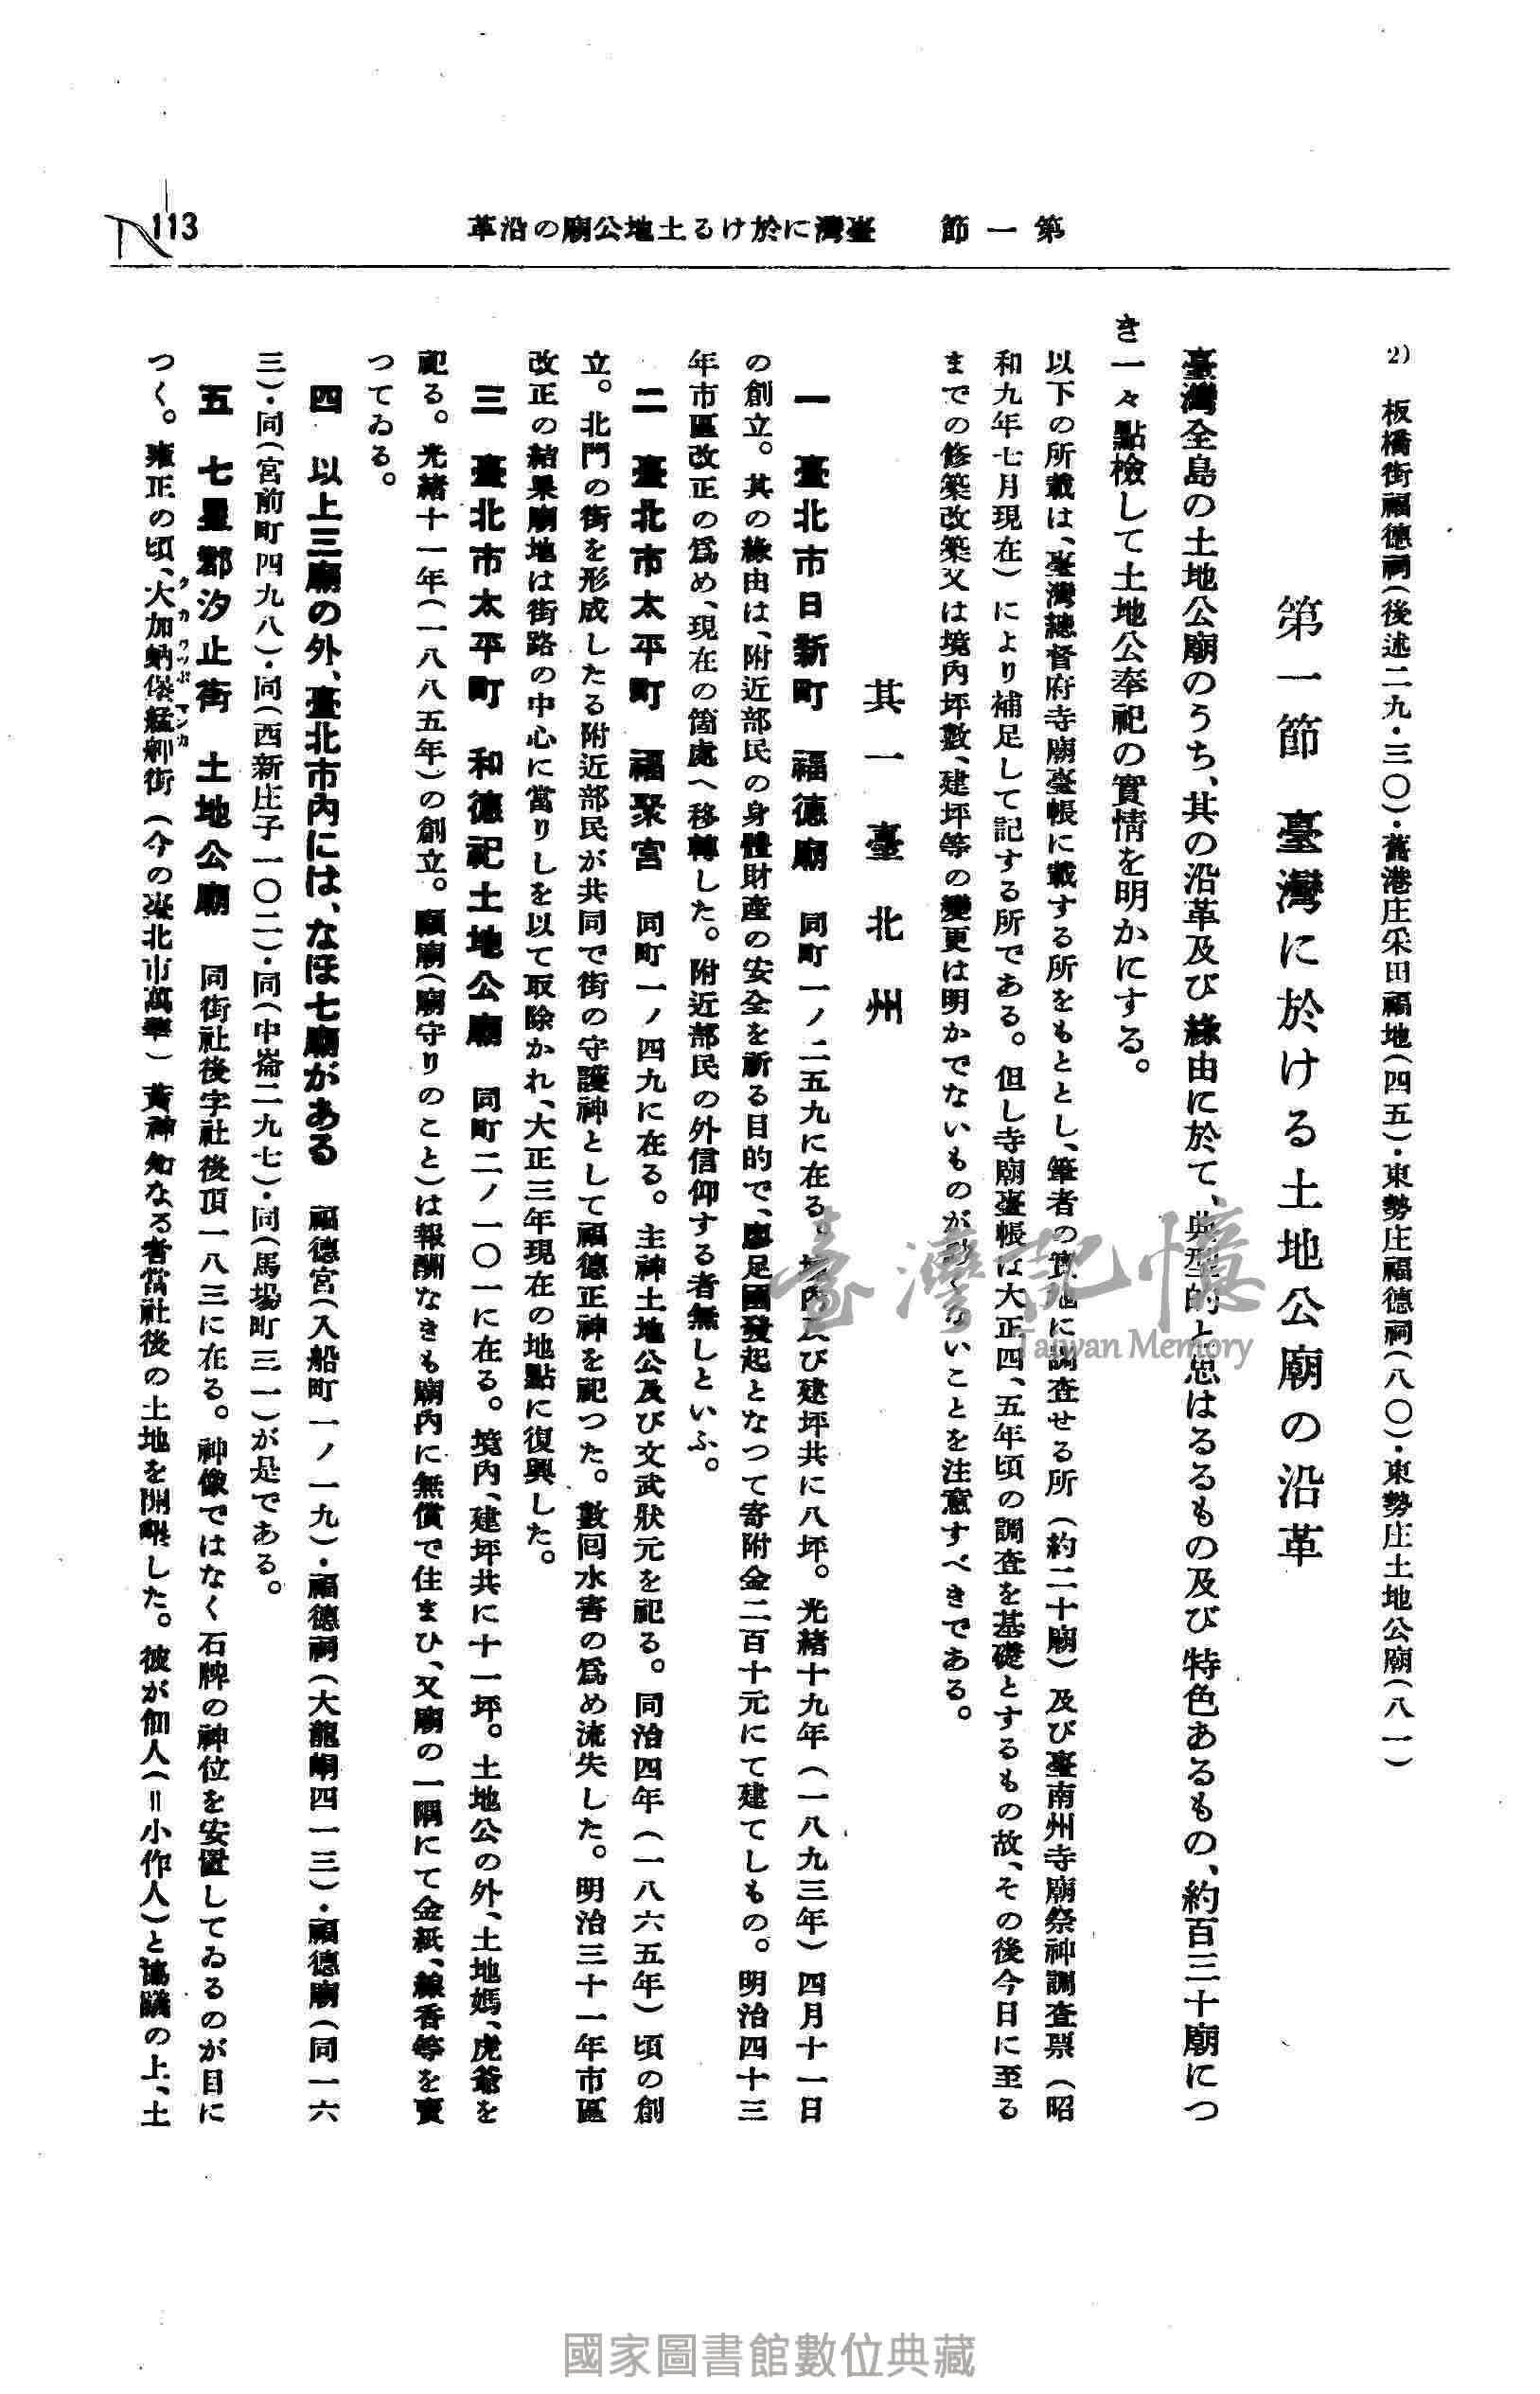 第一節　臺灣に於ける土地公廟の沿革
113
2)　板橋街福德祠(後述二九・三〇)・舊港庄采田福地(四五)・東勢庄福德祠(八〇)・東勢庄土地公廟(八一)
第一節　臺灣に於ける土地公廟の沿革
臺灣全島の土地公廟のうち、其の沿革及び緣由に於て、典型的と思はるるもの及び特色あるもの、約百三十廟につ
き一々點檢して土地公奉祀の實情を明かにする。
以下の所載は、臺灣總督府寺廟臺帳に載する所をもととし、筆者の實地に調査せる所（約二十廟）及び臺南州寺廟祭神調査票（昭
和九年七月現在）により補足して記する所である。但し寺廟臺帳は大正四、五年頃の調査を基礎とするもの故、その後今日に至る
までの修築改築又は境內坪數、建坪等の變更は明かでないものが尠くないことを注意すべきである。
其一　臺北州
一　臺北市日新町　福德廟　同町一ノ二五九に在る。境內及び建坪共に八坪。光緖十九年（一八九三年）四月十一日
の創立。其の緣由は、附近部民の身體財產の安全を祈る目的で、廖足國發起となつて寄附金二百十元にて建てしもの。明治四十三
年市區改正の爲め、現在の箇處へ移轉した。附近部民の外信仰する者無しといふ。
二　臺北市太平町　福聚宮　同町一ノ四九に在る。主神土地公及び文武狀元を祀る。同治四年（一八六五年）頃の創
立。北門の街を形成したる附近部民が共同で街の守護神として福德正神を祀つた。數回水害の爲め流失した。明治三十一年市區
改正の結果廟地は街路の中心に當りしを以て取除かれ、大正三年現在の地點に復興した。
三　臺北市太平町　和德祀土地公廟　同町二ノ一〇一に在る。境內、建坪共に十一坪。土地公の外、土地媽、虎爺を
祀る。光緖十一年(一八八五年)の創立。顧廟(廟守りのこと)は報酬なきも廟內に無償で住まひ、又廟の一隅にて金紙、線香等を賣
つてゐる。
四　以上三廟の外、臺北市內には、なほ七廟がある　福德宮(入船町一ノ一九)・福德祠(大龍峒四一三)・福德廟(同一六
三)・同(宮前町四九八)・同(西新庄子一〇二)・同(中崙二九七)・同(馬場町三一)が是である。
五　七星郡汐止街　土地公廟　同街社後字社後頂一八三に在る。神像ではなく石牌の神位を安置してゐるのが目に
つく。雍正の頃、大加蚋堡艋舺街（今の臺北市萬華）黃神なる者當社後の土地を開墾した。彼が佃人(＝小作人)と協議の上、土
臺灣記憶
Taiwan Memory
國家圖書館數位典藏